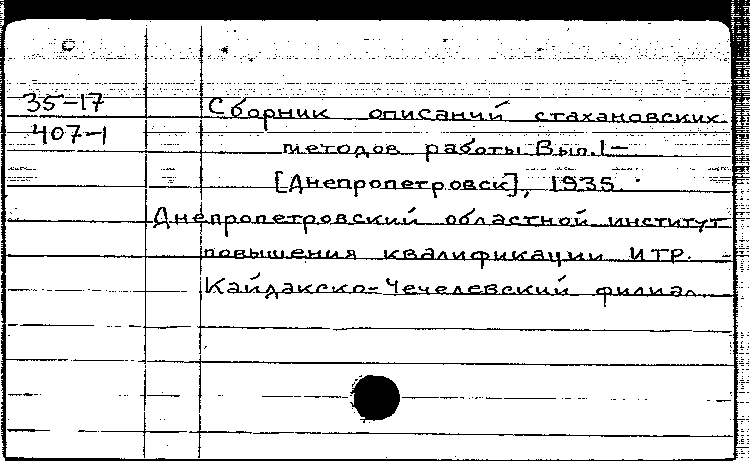 35-17
407-1
Сборник описаний стахановских
методов работы. Вып. 1-
[Днепропетровск], 1935.
Днепропетровский областной институт
повышения квалификации ИТР.
Кайдакско-Чечелевский филиал.